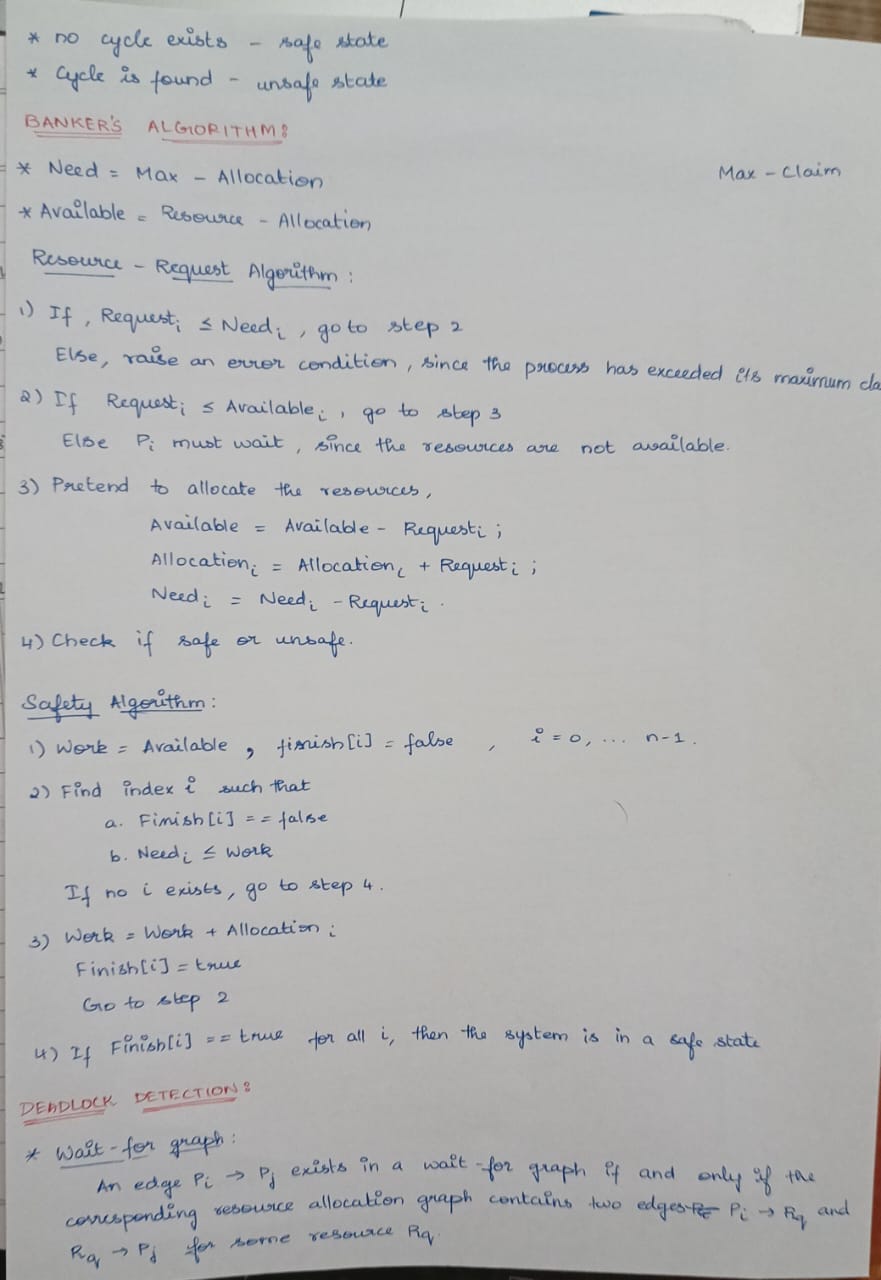 * no cycle exists - safe state
* Cycle is found - unsafe state
BANKER'S ALGORITHM:
* Need = Max - Allocation Max - Claim
* Available = Resource - Allocation
Resource - Request Algorithm :
1) If , Requestᵢ ≤ Needᵢ , go to step 2
Else, raise an error condition , since the process has exceeded its maximum cla
2) If Requestᵢ ≤ Availableᵢ , go to step 3
Else Pᵢ must wait , since the resources are not available.
3) Pretend to allocate the resources,
Available = Available - Requestᵢ ;
Allocationᵢ = Allocationᵢ + Requestᵢ ;
Needᵢ = Needᵢ - Requestᵢ .
4) Check if safe or unsafe.
Safety Algorithm :
1) Work = Available , finish[i] = false , i = 0, ... n-1.
2) Find index i such that
a. Finish[i] == false
b. Needᵢ ≤ Work
If no i exists, go to step 4.
3) Work = Work + Allocationᵢ
Finish[i] = true
Go to step 2
4) If Finish[i] == true for all i, then the system is in a safe state
DEADLOCK DETECTION:
* Wait-for graph :
An edge Pi → Pj exists in a wait-for graph if and only if the
corresponding resource allocation graph contains two edges Pi → Rq and
Rq → Pj for some resource Rq.